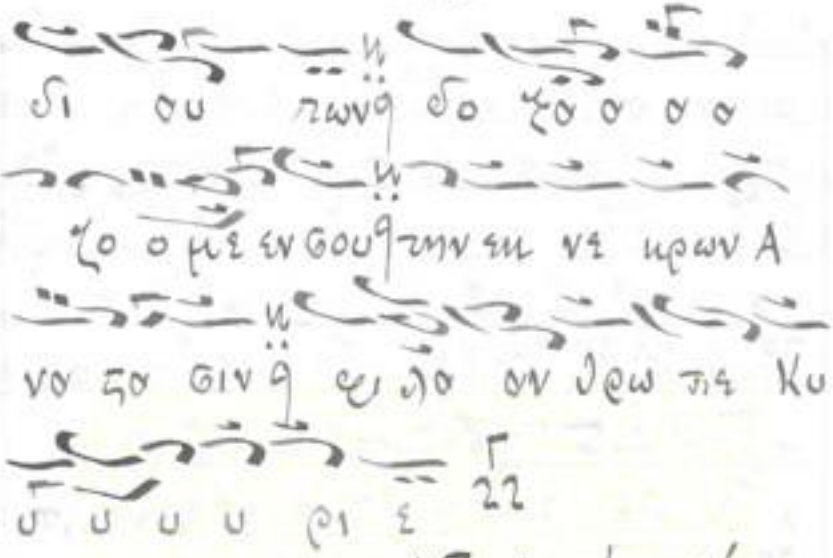 δι ου των δο ξα α α α
ζο ο με εν σου την εκ νε κρων Α
να στα σιν φι λα αν θρω πε Κυ
υ υ υ υ ρι ε